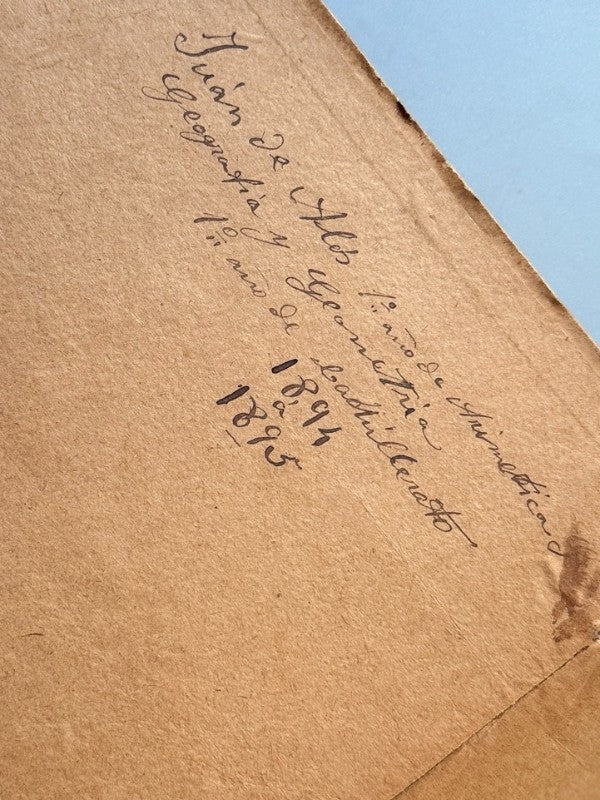 Juán de Alós 1º año de Arimetica
Geografia y Geometria
1º año de bachillerato
1894
a
1895